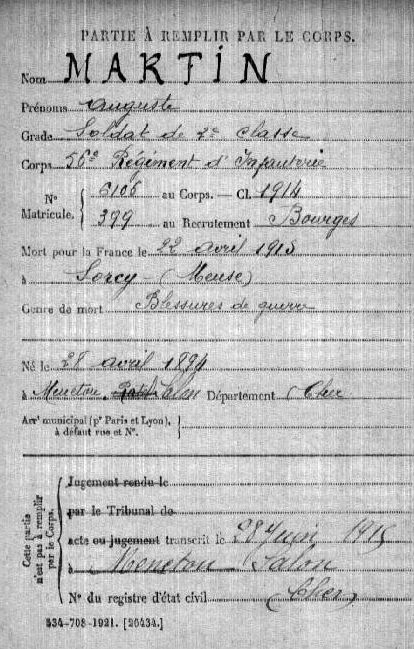 PARTIE À REMPLIR PAR LE CORPS.
Nom MARTIN
Prénoms Auguste
Grade Soldat de 2e classe
Corps 56e Régiment d'Infanterie
N° Matricule. { 6106 au Corps. — Cl. 1914
399 au Recrutement Bourges
Mort pour la France le 22 avril 1915
à Sorcy - (Meuse)
Genre de mort Blessures de guerre
Né le 28 avril 1894
à Menetou Salon Département Cher
Arrt municipal (pr Paris et Lyon), à défaut rue et N°. }
Cette partie n'est pas à remplir par le Corps.
Jugement rendu le
par le Tribunal de
acte ou jugement transcrit le 28 Juin 1915
à Menetou Salon
N° du registre d'état civil (Cher)
534-708-1921. [26434.]